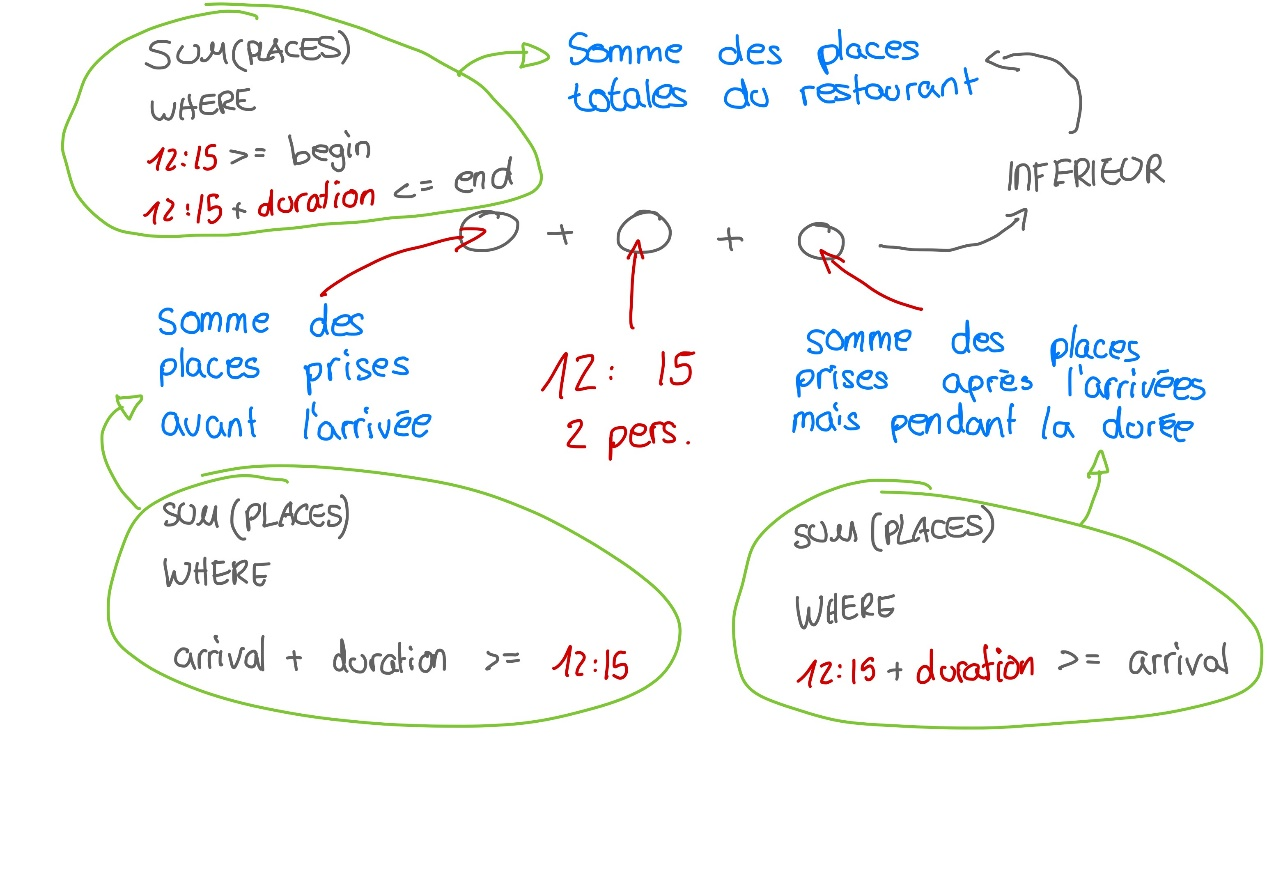 SUM(PLACES)
WHERE
12:15 >= begin
12:15 + duration <= end
Somme des places
totales du restaurant
INFERIEUR
+ +
Somme des
places prises
avant l'arrivée
12: 15
2 pers.
somme des places
prises après l'arrivées
mais pendant la durée
SUM (PLACES)
WHERE
arrival + duration >= 12:15
SUM (PLACES)
WHERE
12:15 + duration >= arrival